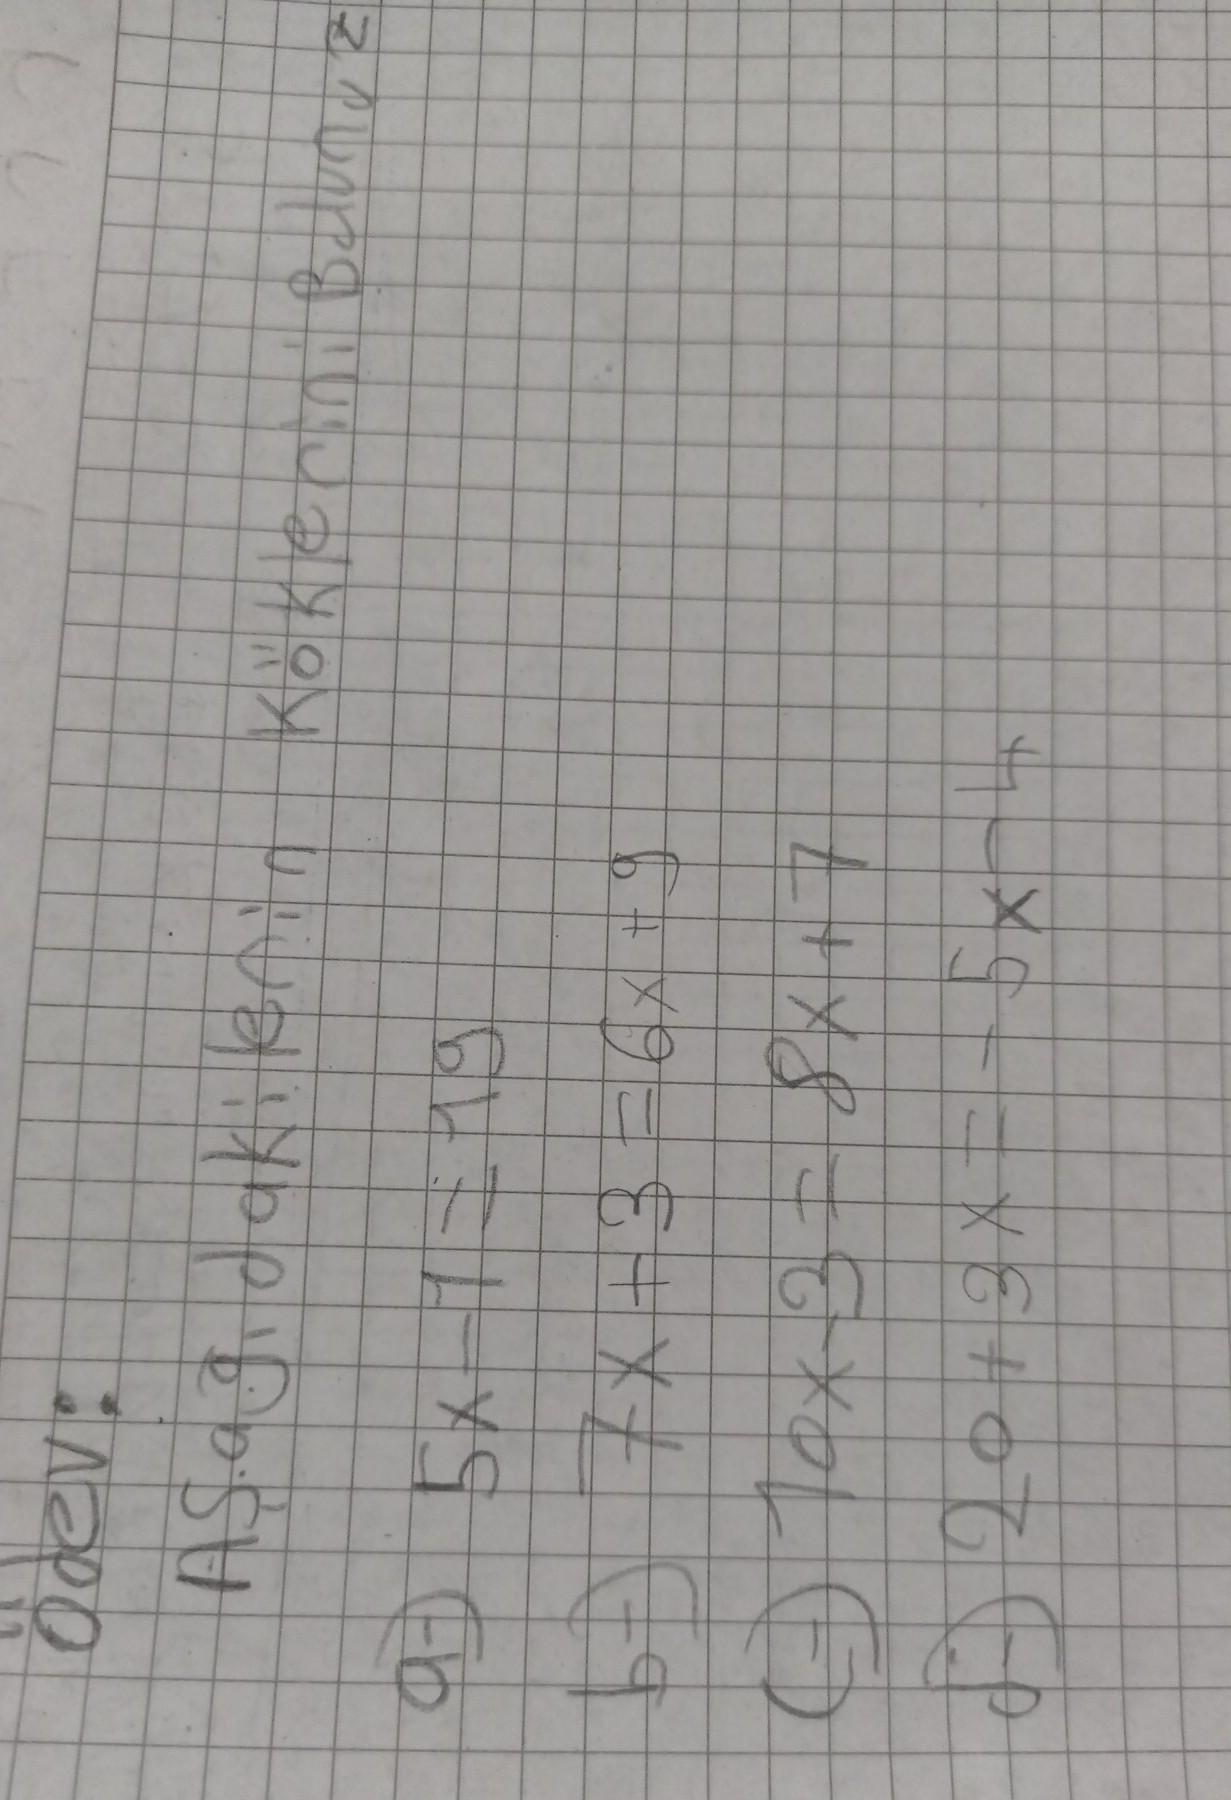 Ödev:
Aşağıdakilerin Köklerini Bulunuz
a-) 5x-1=19
b-) 7x+3=6x+9
c-) 10x-3=8x+7
d-) 20+3x=-5x-4